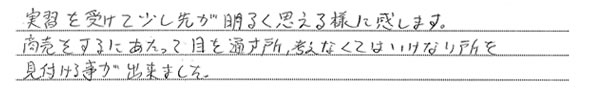 実習を受けて少し先が明るく思える様に感じます。
商売をするにあたって目を通す所,考えなくてはいけない所を
見付ける事が出来ました。